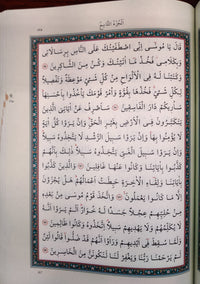 الجُزْءُ التَّاسِعُ
قَالَ يَا مُوسَى إِنِّي اصْطَفَيْتُكَ عَلَى النَّاسِ بِرِسَالَاتِي
وَبِكَلَامِي فَخُذْ مَا آتَيْتُكَ وَكُنْ مِنَ الشَّاكِرِينَ
وَكَتَبْنَا لَهُ فِي الْأَلْوَاحِ مِنْ كُلِّ شَيْءٍ مَوْعِظَةً وَتَفْصِيلًا
لِكُلِّ شَيْءٍ فَخُذْهَا بِقُوَّةٍ وَأْمُرْ قَوْمَكَ يَأْخُذُوا بِأَحْسَنِهَا
سَأُرِيكُمْ دَارَ الْفَاسِقِينَ سَأَصْرِفُ عَنْ آيَاتِيَ الَّذِينَ
يَتَكَبَّرُونَ فِي الْأَرْضِ بِغَيْرِ الْحَقِّ وَإِنْ يَرَوْا كُلَّ آيَةٍ
لَا يُؤْمِنُوا بِهَا وَإِنْ يَرَوْا سَبِيلَ الرُّشْدِ لَا يَتَّخِذُوهُ سَبِيلًا
وَإِنْ يَرَوْا سَبِيلَ الْغَيِّ يَتَّخِذُوهُ سَبِيلًا ذَلِكَ بِأَنَّهُمْ
كَذَّبُوا بِآيَاتِنَا وَكَانُوا عَنْهَا غَافِلِينَ وَالَّذِينَ كَذَّبُوا
بِآيَاتِنَا وَلِقَاءِ الْآخِرَةِ حَبِطَتْ أَعْمَالُهُمْ هَلْ يُجْزَوْنَ
إِلَّا مَا كَانُوا يَعْمَلُونَ وَاتَّخَذَ قَوْمُ مُوسَى مِنْ بَعْدِهِ
مِنْ حُلِيِّهِمْ عِجْلًا جَسَدًا لَهُ خُوَارٌ أَلَمْ يَرَوْا أَنَّهُ
لَا يُكَلِّمُهُمْ وَلَا يَهْدِيهِمْ سَبِيلًا اتَّخَذُوهُ وَكَانُوا ظَالِمِينَ
وَلَمَّا سُقِطَ فِي أَيْدِيهِمْ وَرَأَوْا أَنَّهُمْ قَدْ ضَلُّوا قَالُوا لَئِنْ
لَمْ يَرْحَمْنَا رَبُّنَا وَيَغْفِرْ لَنَا لَنَكُونَنَّ مِنَ الْخَاسِرِينَ